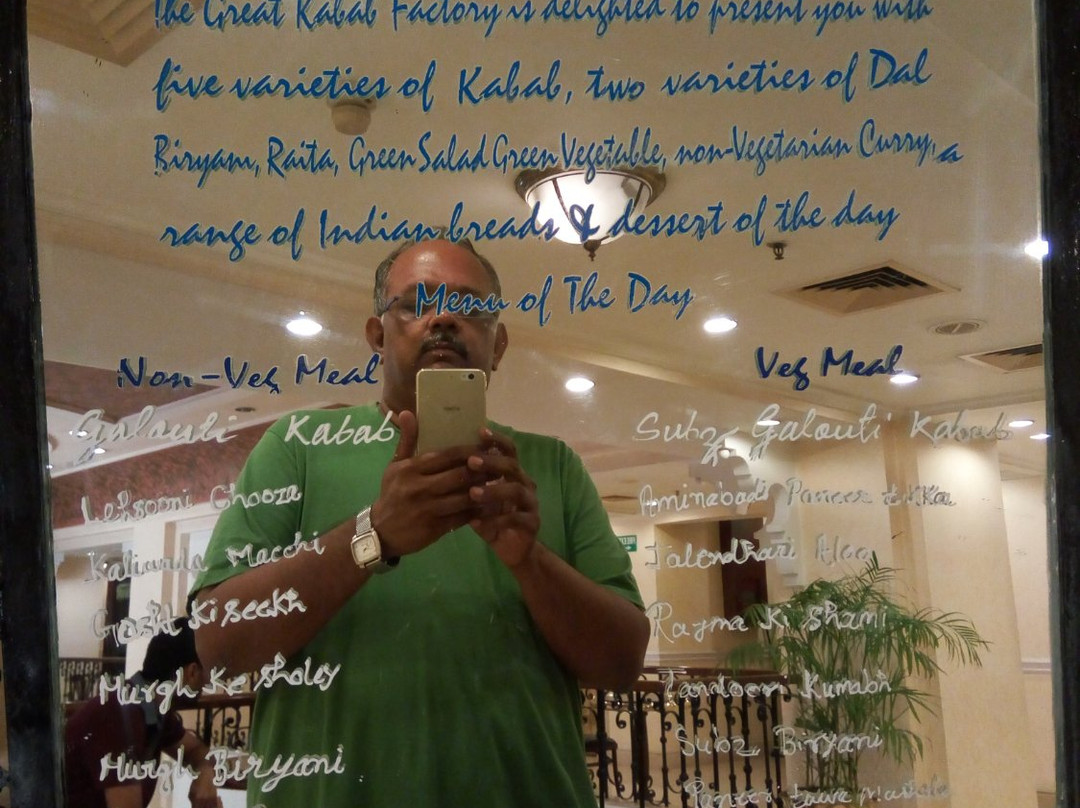 The Great Kabab Factory is delighted to present you with
five varieties of Kabab, two varieties of Dal
Biryani, Raita, Green Salad Green Vegetable, non-Vegetarian Curry, a
range of Indian breads & dessert of the day
Menu of The Day
Non-Veg Meal
Galouti Kabab
Lehsooni Chooza
Macchi
Gosht Ki Seekh
Murgh Ke Sholey
Murgh Biryani
Veg Meal
Subz Galouti Kabab
Aminabadi Paneer tikka
Jalendhari Aloo
Rajma Ki Shami
Tandoori Kumabh
Subz Biryani
Paneer tawa Masala